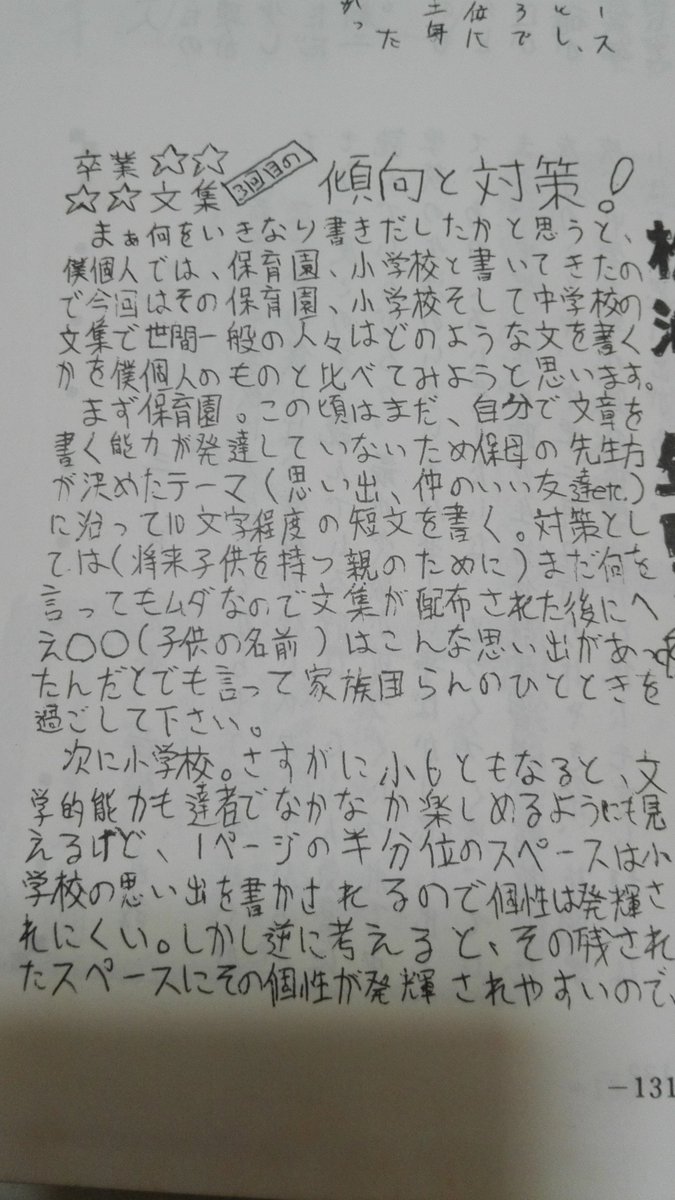 卒業☆☆
☆☆文集 3回目の 傾向と対策!
まぁ何をいきなり書きだしたかと思うと、
僕個人では、保育園、小学校と書いてきたの
で今回はその保育園、小学校そして中学校の
文集で世間一般の人々はどのような文を書く
かを僕個人のものと比べてみようと思います。
まず保育園。この頃はまだ、自分で文章を
書く能力が発達していないため保母の先生方
が決めたテーマ(思い出、仲のいい友達etc.)
に沿って10文字程度の短文を書く。対策とし
ては(将来子供を持つ親のために)まだ何を
言ってもムダなので文集が配布された後にへ
え〇〇(子供の名前)はこんな思い出があっ
たんだとでも言って家族団らんのひとときを
過ごして下さい。
次に小学校。さすがに小6ともなると、文
学的能力も達者でなかなか楽しめるようにも見
えるけど、1ページの半分位のスペースは小
学校の思い出を書かされるので個性は発揮さ
れにくい。しかし逆に考えると、その残され
たスペースにその個性が発揮されやすいので、
-131